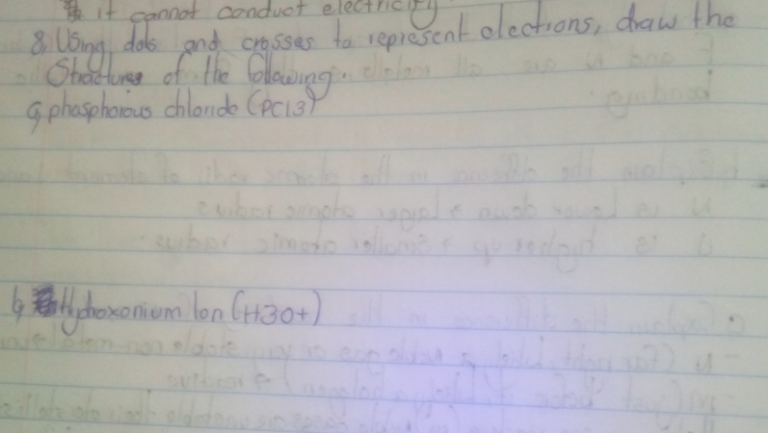 it cannot conduct electricity
8. Using dots and crosses to represent elections, draw the
Structures of the following.
a, phosphorous chloride (PCl3)
b, Hydroxonium Ion (H3O+)